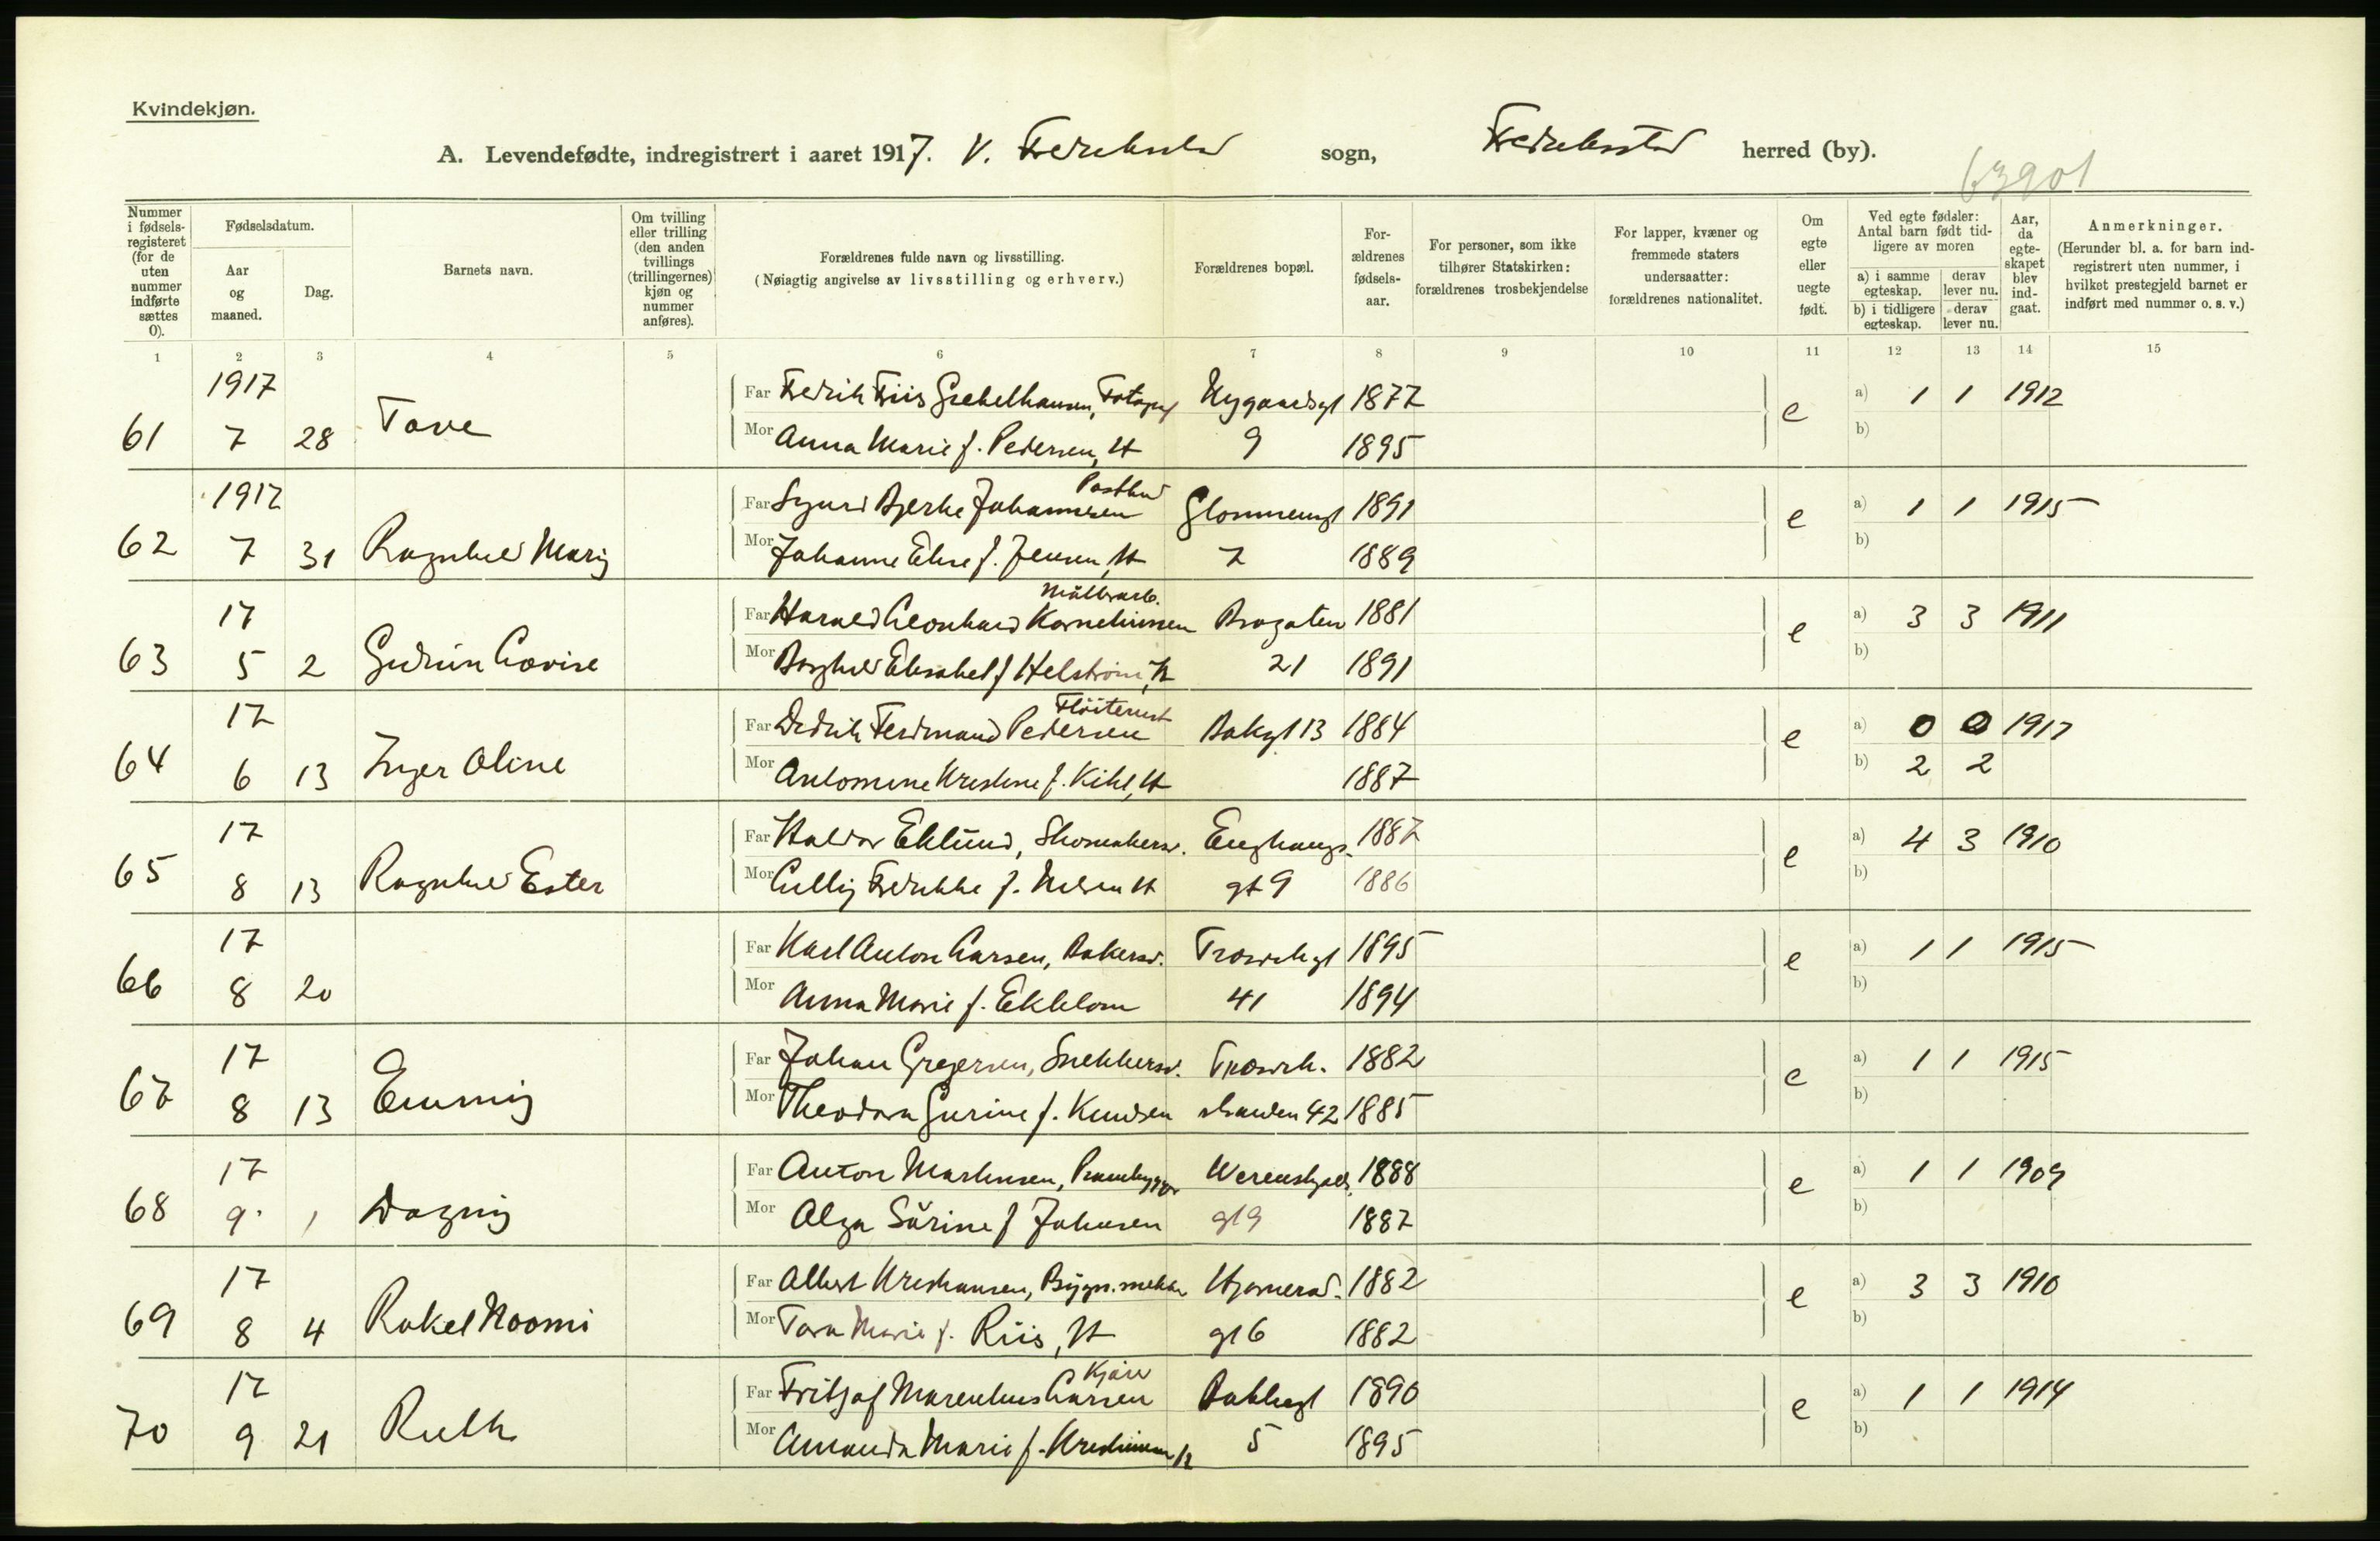 Kvindekjøn.
A. Levendefødte, indregistrert i aaret 1917. V. Fredrikstad sogn, Fredrikstad herred (by).
63901
Nummer i fødselsregisteret (for de uten nummer indførte sættes 0).
Fødselsdatum.
Aar og maaned.
Dag.
Barnets navn.
Om tvilling eller trilling (den anden tvillings (trillingernes) kjøn og nummer anføres).
Forældrenes fulde navn og livsstilling.
(Nøiagtig angivelse av livsstilling og erhverv.)
Forældrenes bopæl.
Forældrenes fødselsaar.
For personer, som ikke tilhører Statskirken: forældrenes trosbekjendelse
For lapper, kvæner og fremmede staters undersaatter: forældrenes nationalitet.
Om egte eller uegte født.
Ved egte fødsler: Antal barn født tidligere av moren
a) i samme egteskap. derav lever nu.
b) i tidligere egteskap. derav lever nu.
Aar, da egteskapet blev indgaat.
Anmerkninger.
(Herunder bl. a. for barn indregistrert uten nummer, i hvilket prestegjeld barnet er indført med nummer o. s. v.)
1 2 3 4 5 6 7 8 9 10 11 12 13 14 15
1917 Far Fredrik Friis Grebelhausen, Fotograf Nygaardsgt 1877 e a) 1 1 1912
61 7 28 Tove Mor Anna Marie f. Pedersen, H 9 1895 b)
1917 Far Sigurd Bjerke Johannesen Postbud Glommengt 1891 e a) 1 1 1915
62 7 31 Ragnhild Marij Mor Johanne Elise f. Jensen, H 7 1889 b)
17 Far Harald Leonhard Korneliussen Brogaten 1881 e a) 3 3 1911
63 5 2 Gudrun Lovise Mor Borghild Elisabet f Helström, H 21 1891 b)
17 Far Didrik Ferdinand Pedersen Bakgt 13 1884 e a) 0 0 1917
64 6 13 Inger Oline Mor Antomine Kristine f. Kihl, H 1887 b) 2 2
17 Far Haldor Eklund, Skomakersv. Enghaugs- 1887 e a) 4 3 1910
65 8 13 Ragnhild Ester Mor Lilly Fredrikke f. Nilsen H gt 9 1886 b)
17 Far Karl Anton Larsen, Bakersv. Trosvikgt 1895 e a) 1 1 1915
66 8 20 Mor Anna Marie f. Ekblom 41 1894 b)
17 Far Johan Gregersen, Snekkersv. Trosvik- 1882 e a) 1 1 1915
67 8 13 Emmij Mor Theodora Gurine f. Knudsen stranden 42 1885 b)
17 Far Anton Martinsen, Prambygger Werenskjolds 1888 e a) 1 1 1909
68 9 1 Dagnij Mor Olga Sörine f Johnsen gt 9 1887 b)
17 Far Albert Kristiansen, Bygn.snekker 1882 e a) 3 3 1910
69 8 4 Rakel Noomi Mor Tora Marie f. Riis, H gt 6 1882 b)
17 Far Fritjof Marenius Larsen Bakkegt 1890 e a) 1 1 1914
70 9 21 Ruth Mor Amanda Marie f. Kristiansen H 5 1895 b)